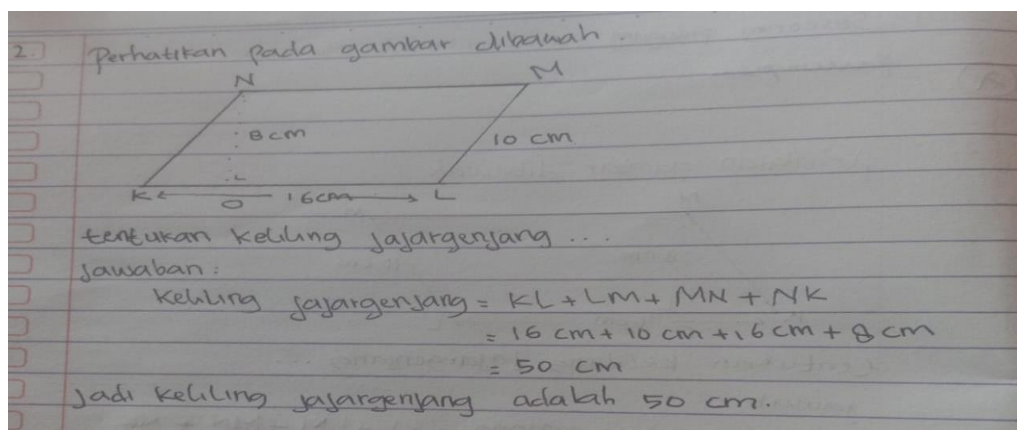 2. Perhatikan pada gambar dibawah.
N M
8 cm 10 cm
K O 16cm L
tentukan keliling jajargenjang ...
Jawaban:
Keliling jajargenjang = KL + LM + MN + NK
= 16 cm + 10 cm + 16 cm + 8 cm
= 50 cm
Jadi keliling jajargenjang adalah 50 cm.